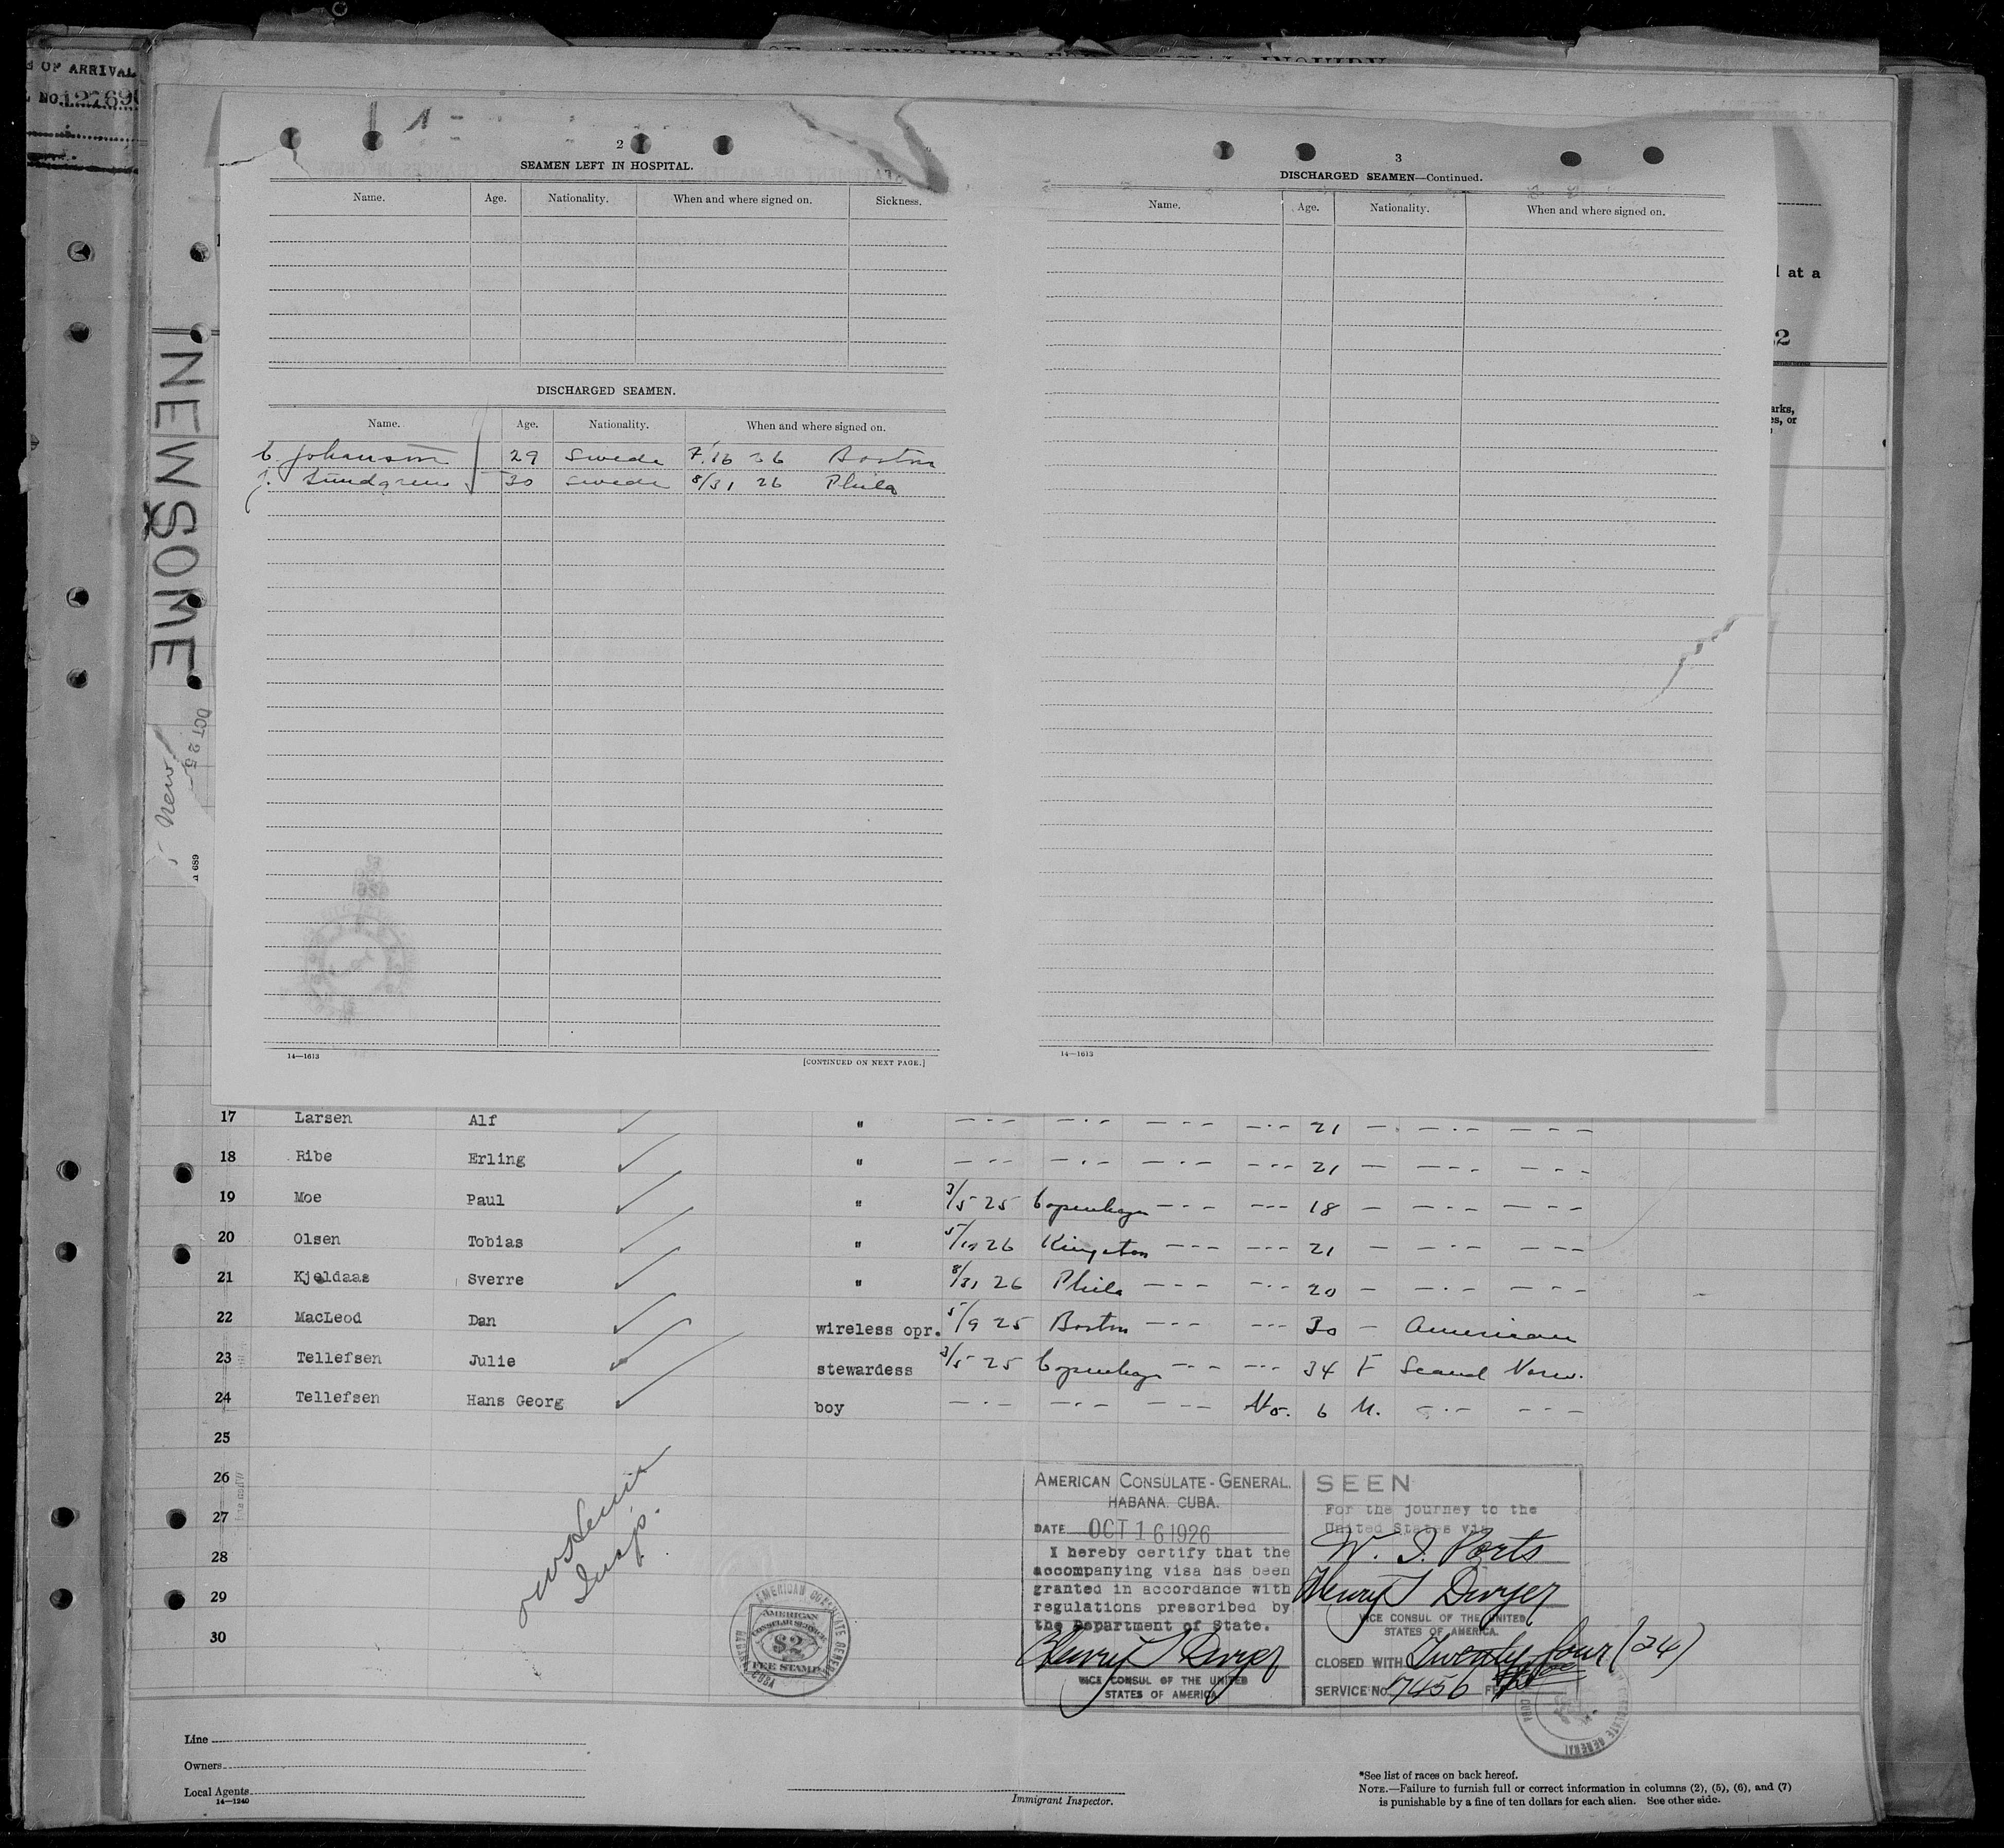 OF ARRIVAL
NO. 12769
2
SEAMEN LEFT IN HOSPITAL.
Name. Age. Nationality. When and where signed on. Sickness.
DISCHARGED SEAMEN.
Name. Age. Nationality. When and where signed on.
C. Johansson 29 Swede 7/16 26 Boston
J. Sundgren 30 Swede 8/31 26 Phila
14—1613 [CONTINUED ON NEXT PAGE.]
3
DISCHARGED SEAMEN—Continued.
Name. Age. Nationality. When and where signed on.
14—1613
at a
2
NEWSOME
OCT 25
New
689
17 Larsen Alf " — · — — · — — · — — · — 21 — — · — — — —
18 Ribe Erling " — · — — · — — · — — — — 21 — — — — — — —
19 Moe Paul " 3/5 25 Copenhagen — — — — — — 18 — — · — — — —
20 Olsen Tobias " 5/10 26 Kingston — — — — — — 21 — — · — — — —
21 Kjeldaas Sverre " 8/31 26 Phila — — — — · — 20 — — · — — — —
22 MacLeod Dan wireless opr. 5/9 25 Boston — — — — — — 30 — American
23 Tellefsen Julie stewardess 3/5 25 Copenhagen — — — — — — 34 F Scand Norw.
24 Tellefsen Hans Georg boy — · — — · — — — — No. 6 M. — · — — — —
25
26
27
28
29
30
Insp.
AMERICAN CONSULATE GENERAL
HABANA, CUBA
AMERICAN
CONSULAR SERVICE
$2
FEE STAMP
AMERICAN CONSULATE-GENERAL.
HABANA. CUBA.
DATE OCT 16 1926
I hereby certify that the
accompanying visa has been
granted in accordance with
regulations prescribed by
the Department of State.
Henry T Dwyer
VICE CONSUL OF THE UNITED
STATES OF AMERICA.
SEEN
For the journey to the
United States via
W. I. Ports
Henry T Dwyer
VICE CONSUL OF THE UNITED
STATES OF AMERICA.
CLOSED WITH Twenty four (24)
SERVICE No. 7456
Line
Owners
Local Agents
14—1240
Immigrant Inspector.
*See list of races on back hereof.
NOTE.—Failure to furnish full or correct information in columns (2), (5), (6), and (7)
is punishable by a fine of ten dollars for each alien. See other side.